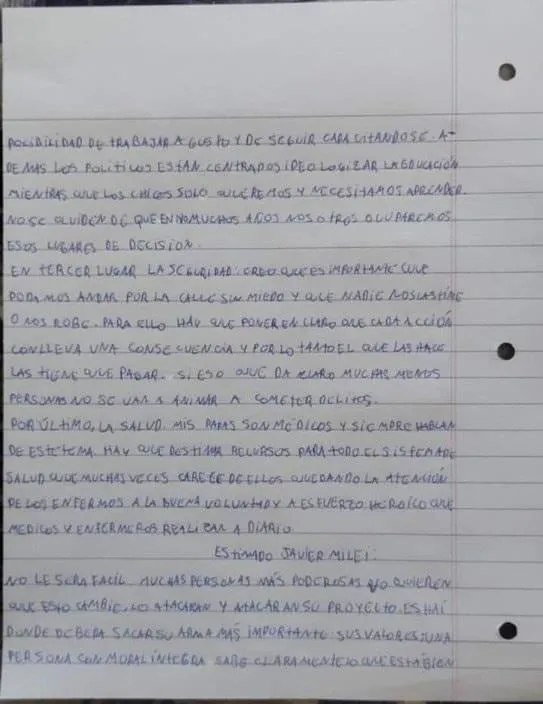 POSIBILIDAD DE TRABAJAR A GUSTO Y DE SEGUIR CAPACITANDOSE. A-
DEMAS LOS POLITICOS ESTAN CENTRADOS IDEOLOGIZAR LA EDUCACIÓN
MIENTRAS QUE LOS CHICOS SOLO QUEREMOS Y NECESITAMOS APRENDER.
NO SE OLVIDEN DE QUE EN NO MUCHOS AÑOS NOSOTROS OCUPAREMOS
ESOS LUGARES DE DECISION.
EN TERCER LUGAR LA SEGURIDAD: CREO QUE ES IMPORTANTE QUE
PODAMOS ANDAR POR LA CALLE SIN MIEDO Y QUE NADIE NOS LASTIME
O NOS ROBE. PARA ELLO HAY QUE PONER EN CLARO QUE CADA ACCIÓN
CONLLEVA UNA CONSECUENCIA Y POR LO TANTO EL QUE LAS HACE
LAS TIENE QUE PAGAR. SI ESO QUE DA CLARO MUCHAS MENOS
PERSONAS NO SE VAN A ANIMAR A COMETER DELITOS.
POR ÚLTIMO, LA SALUD. MIS PAPAS SON MÉDICOS Y SIEMPRE HABLAN
DE ESTE TEMA. HAY QUE DESTINAR RECURSOS PARA TODO EL SISTEMA DE
SALUD QUE MUCHAS VECES CARECE DE ELLOS QUEDANDO LA ATENCIÓN
DE LOS ENFERMOS A LA BUENA VOLUNTAD Y A ESFUERZO HEROICO QUE
MEDICOS Y ENFERMEROS REALIZAN A DIARIO.
ESTIMADO JAVIER MILEI:
NO LE SERA FACIL. MUCHAS PERSONAS MÁS PODEROSAS NO QUIEREN
QUE ESTO CAMBIE, LO ATACARAN Y ATACARAN SU PROYECTO. ES HAI
DONDE DEBERA SACAR SU ARMA MÁS IMPORTANTE: SUS VALORES; UNA
PERSONA CON MORAL INTEGRA SABE CLARAMENTE LO QUE ESTA BIEN